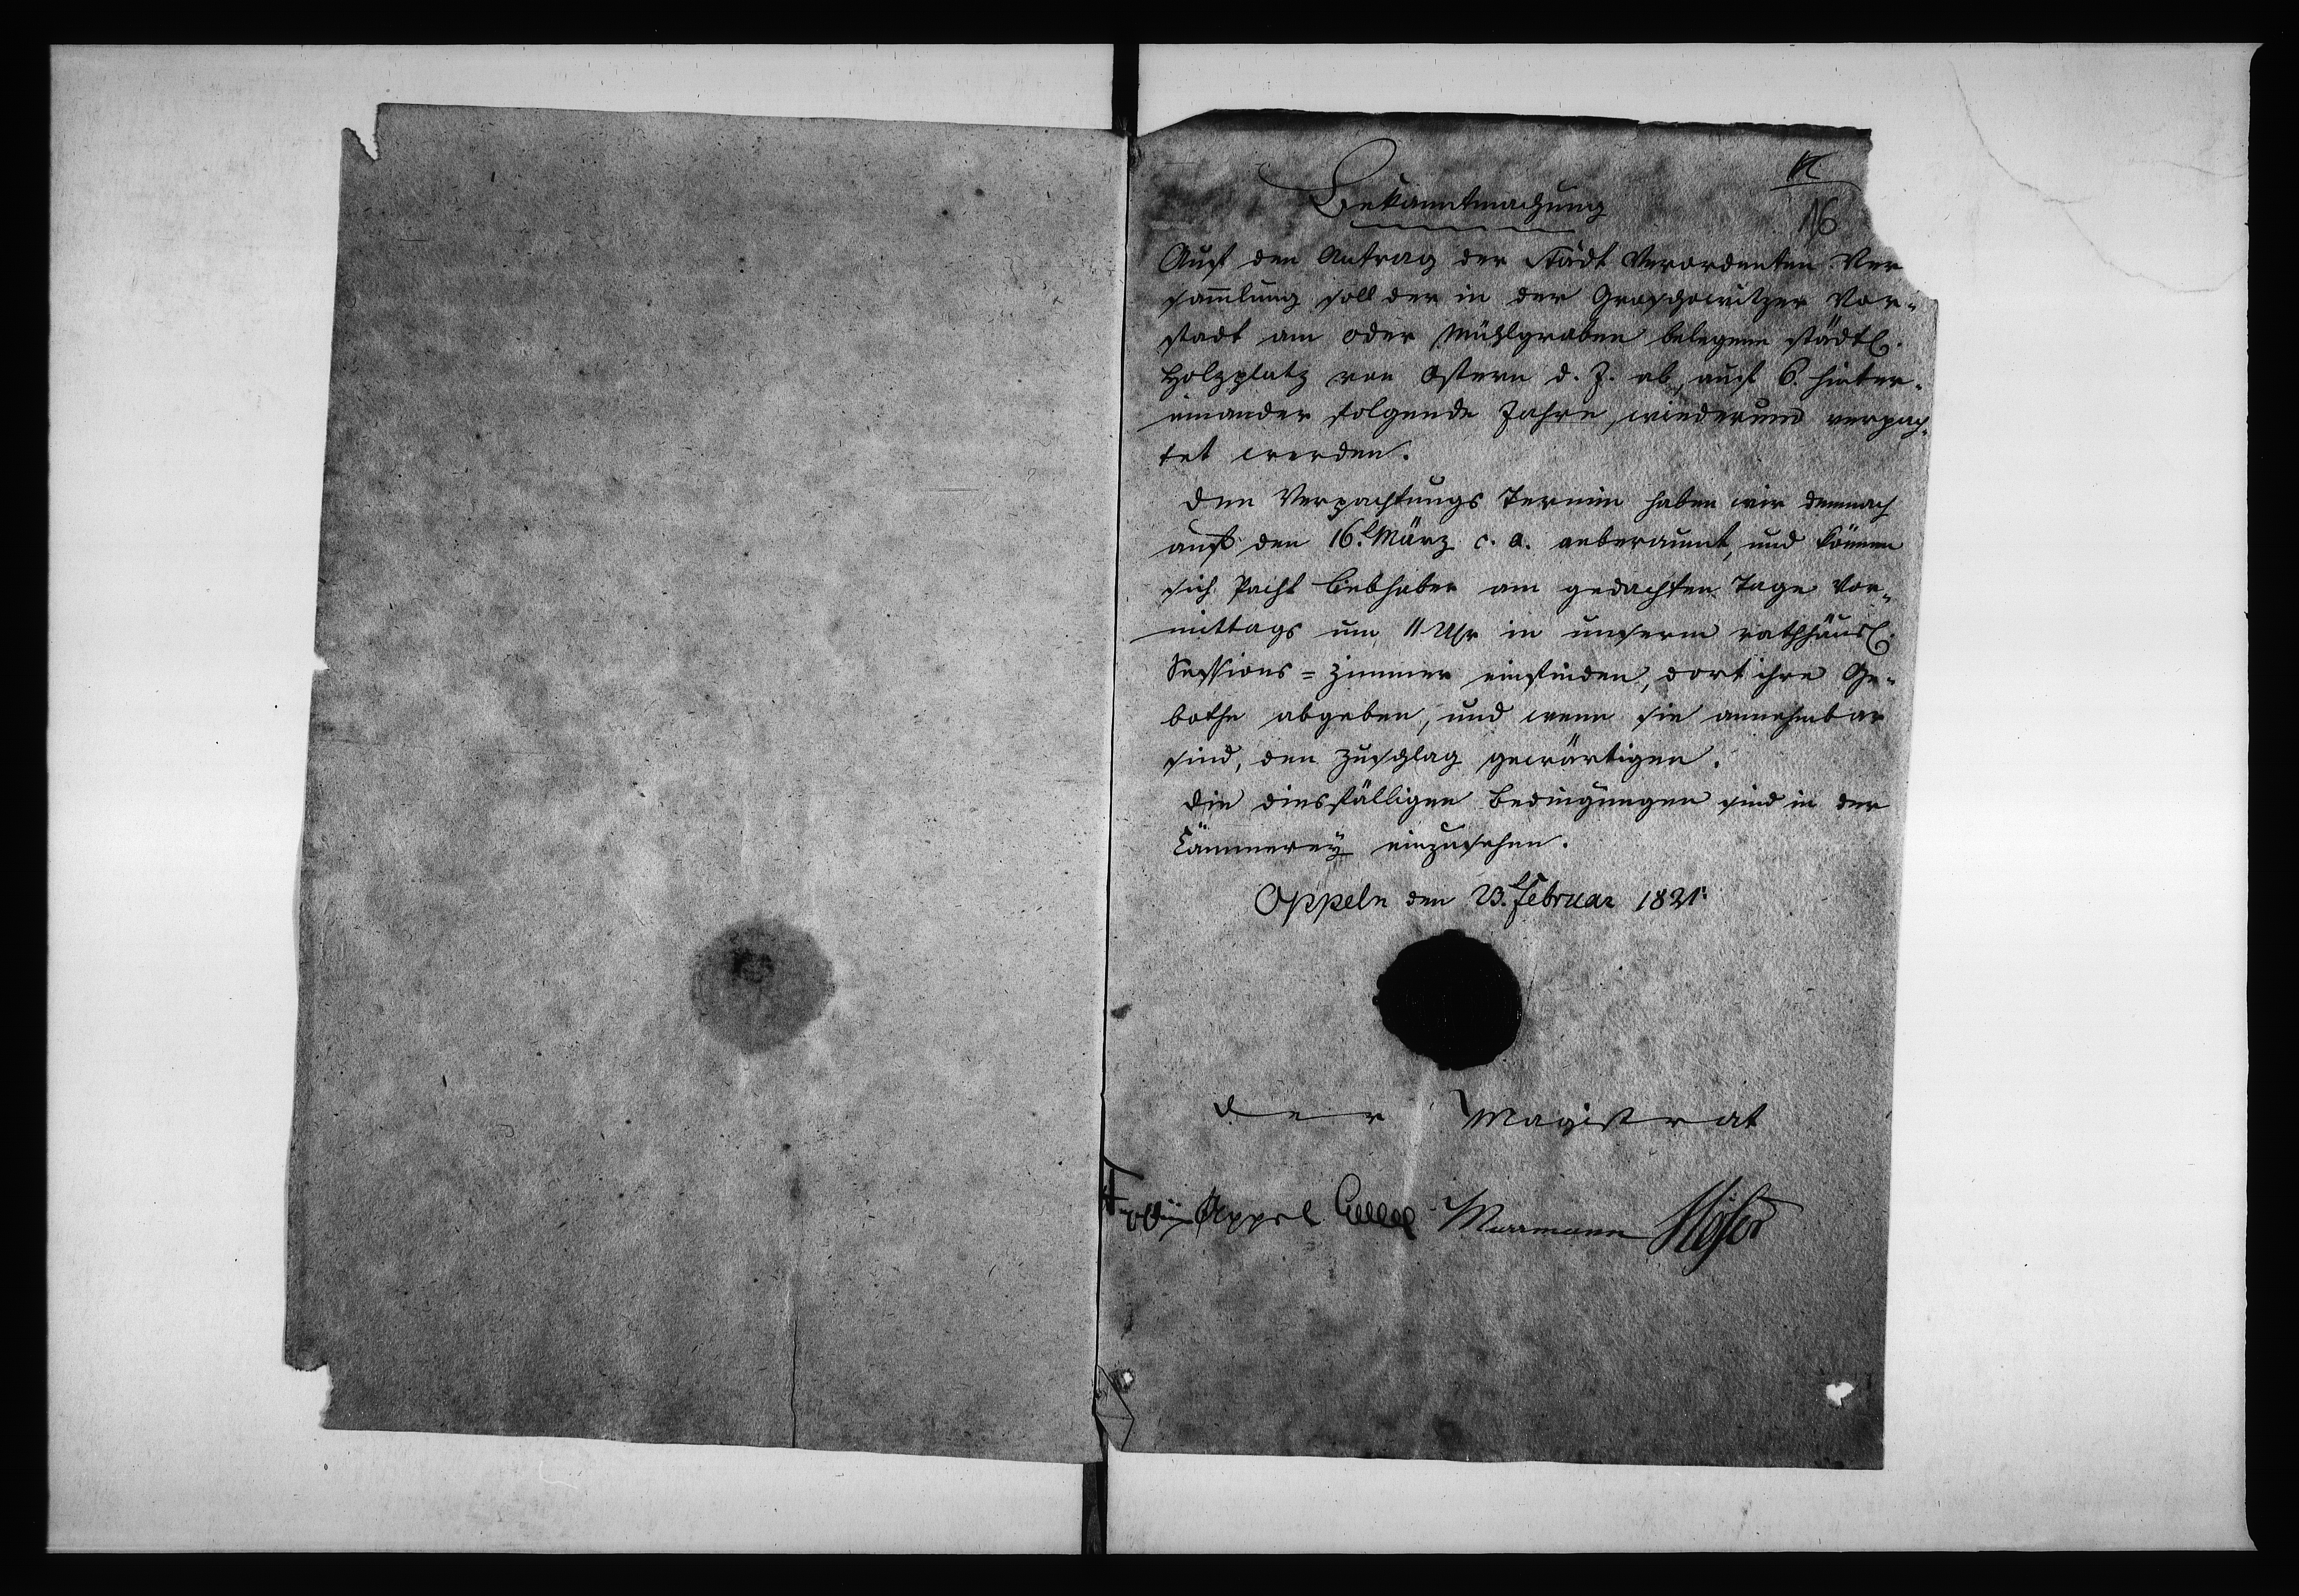 Bekanntmachung
16
Auf den Antrag der Stadt Verordenten Ver
sam̅lung soll der in der Groschowitzer Vor-
stadt am Oder Mühlgraben belegene städtl.
Holzplatz von Ostern d. J. ab, auf 6. hinter-
einander folgende Jahre, wiederum verpach-
tet werden.
Den Verpachtungs Termin haben wir demnach
auf den 16t. März c. a. anberaumt, und können
sich Pacht Liebhaber am gedachten Tage Vor-
mittags um 11 Uhr in unserm rathhäusl.
Sessions=Zimmer einfinden, dort ihre Ge-
bothe abgeben, und wenn sie annehmbar
sind, den Zuschlag gewärtigen.
Die diesfälligen Bedingungen sind in der
Cämmerey einzusehen.
Oppeln den 23t. Februar 1821.
Der Magistrat
Appel Murrmann